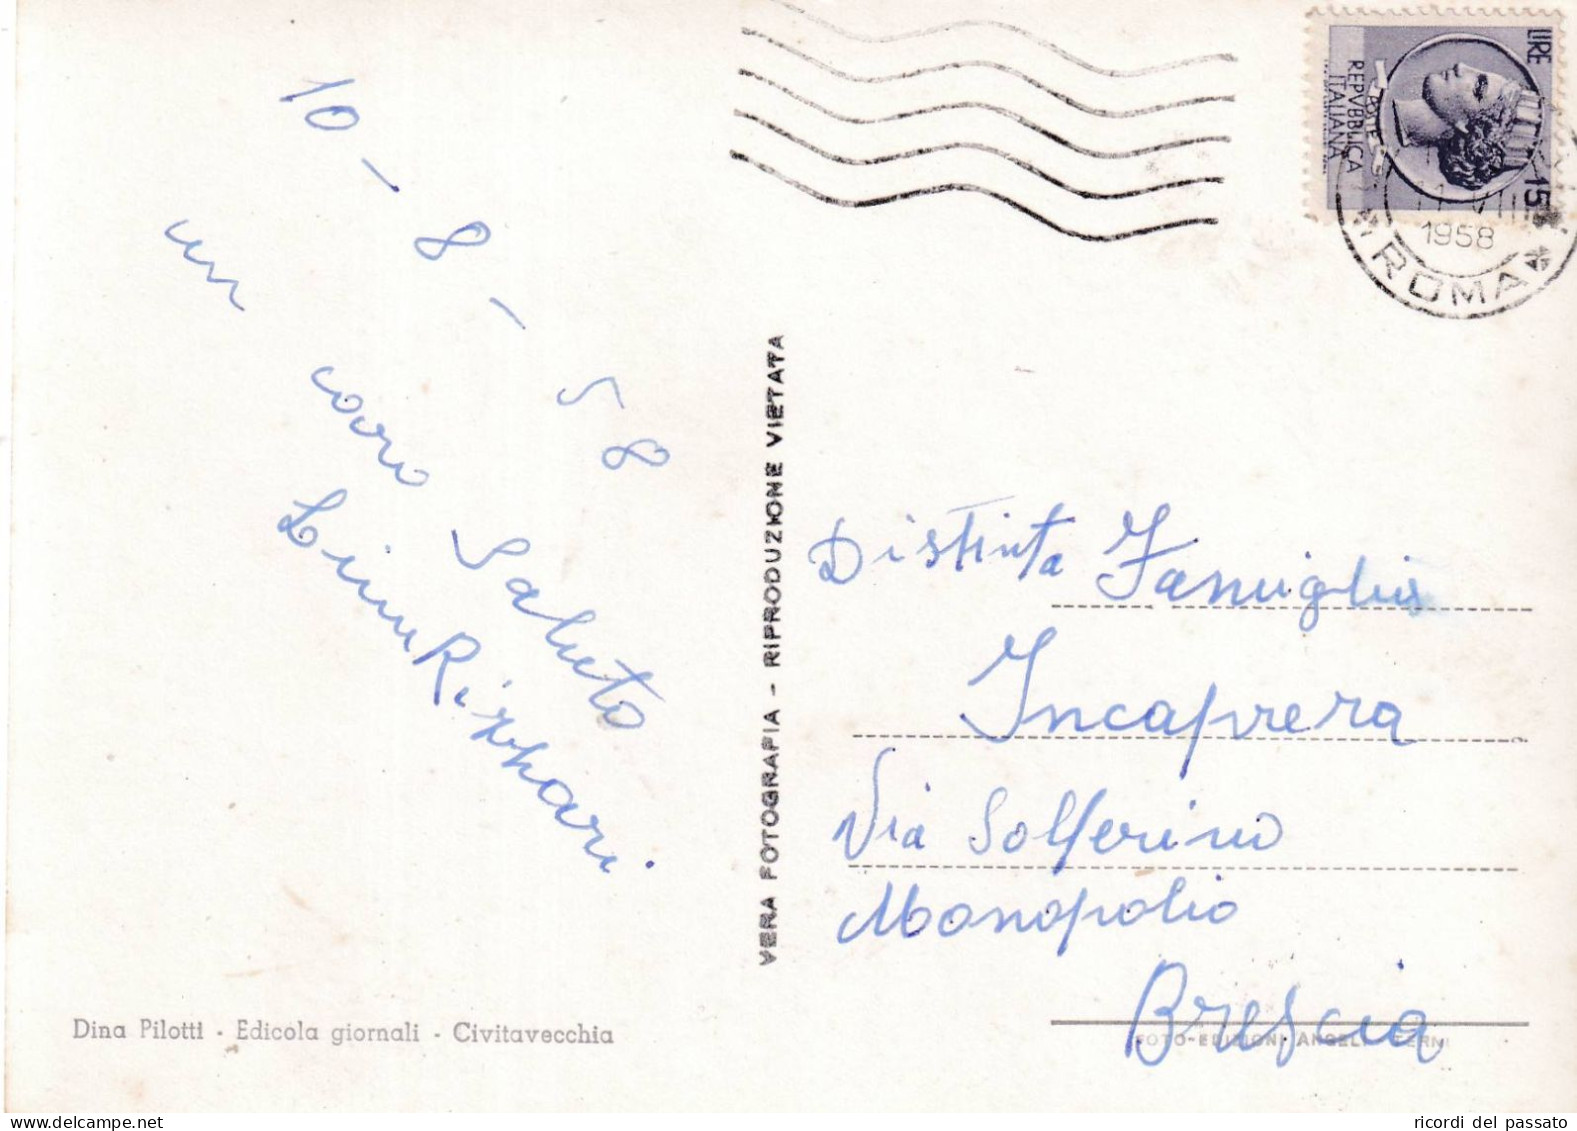 10-8-58
un caro
Saluto
VERA FOTOGRAFIA - RIPRODUZIONE VIETATA
LIRE
REPVBBLICA
ITALIANA
15
11 VIII
1958
ROMA
Distinta Famiglia
Incaprera
Via Solferino
Monopolio
Brescia
Dina Pilotti - Edicola giornali - Civitavecchia
FOTO-EDIZIONI ANGELI TERNI
ricordi del passato